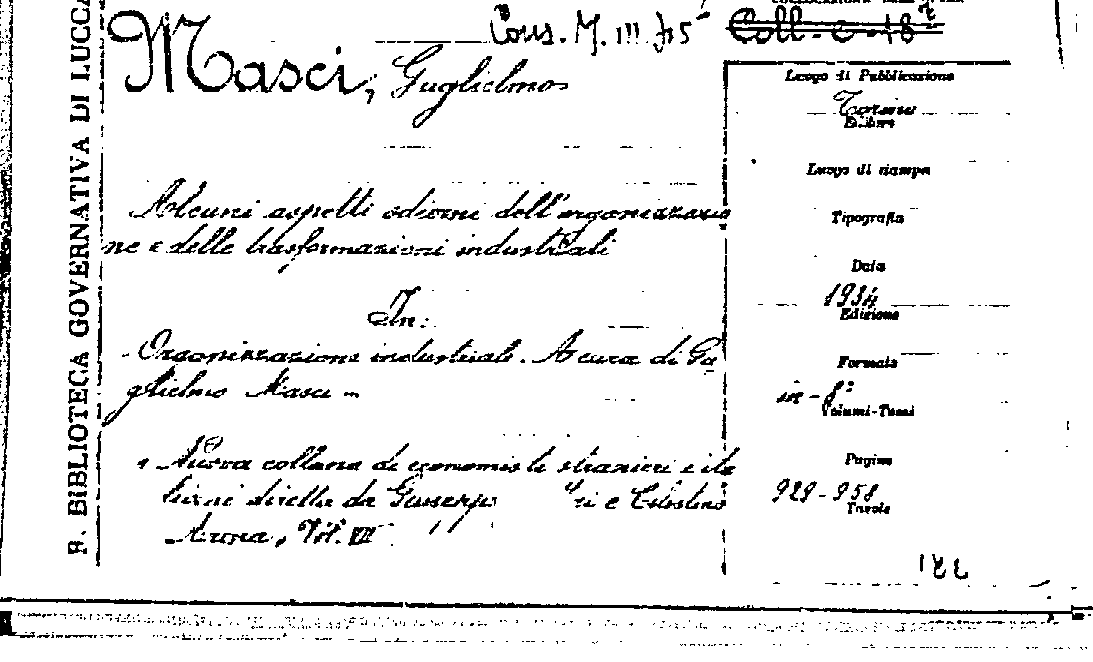 R. BIBLIOTECA GOVERNATIVA DI LUCCA
Cons. M. III 75
Coll. C-18
Masci, Guglielmo
Alcuni aspetti odierni dell'organizzazio
ne e delle trasformazioni industriali
In:
Organizzazione industriale. A cura di Gu
glielmo Masci
« Nuova collana di economisti stranieri e ita
liani diretta da Giusepp e Celestino
Arena, Vol. VII
Luogo di Pubblicazione
Torino
Editore
Luogo di stampa
Tipografia
Data
1934
Edizione
Formato
in-8°
Volumi-Tomi
Pagine
929-958
Tavole